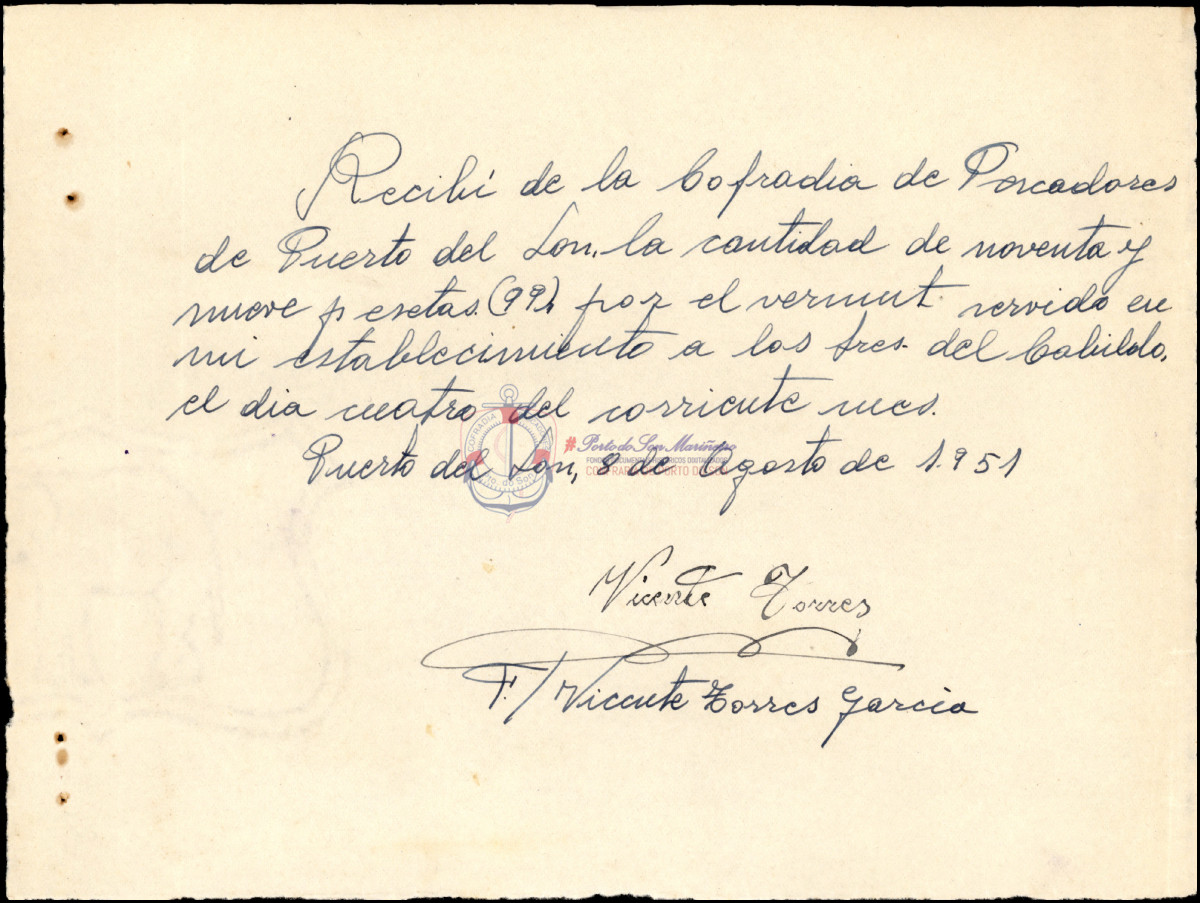 Recibí de la Cofradia de Pescadores
de Puerto del Son, la cantidad de noventa y
nueve pesetas (99), por el vermut servido en
mi establecimiento a los tres del Cabildo,
el dia cuatro del corriente mes.
Puerto del Son, 8 de Agosto de 1.951
COFRADIA
Pto. do Son
# Porto do Son Mariñeiro
Vicente Torres
F./ Vicente Torres Garcia